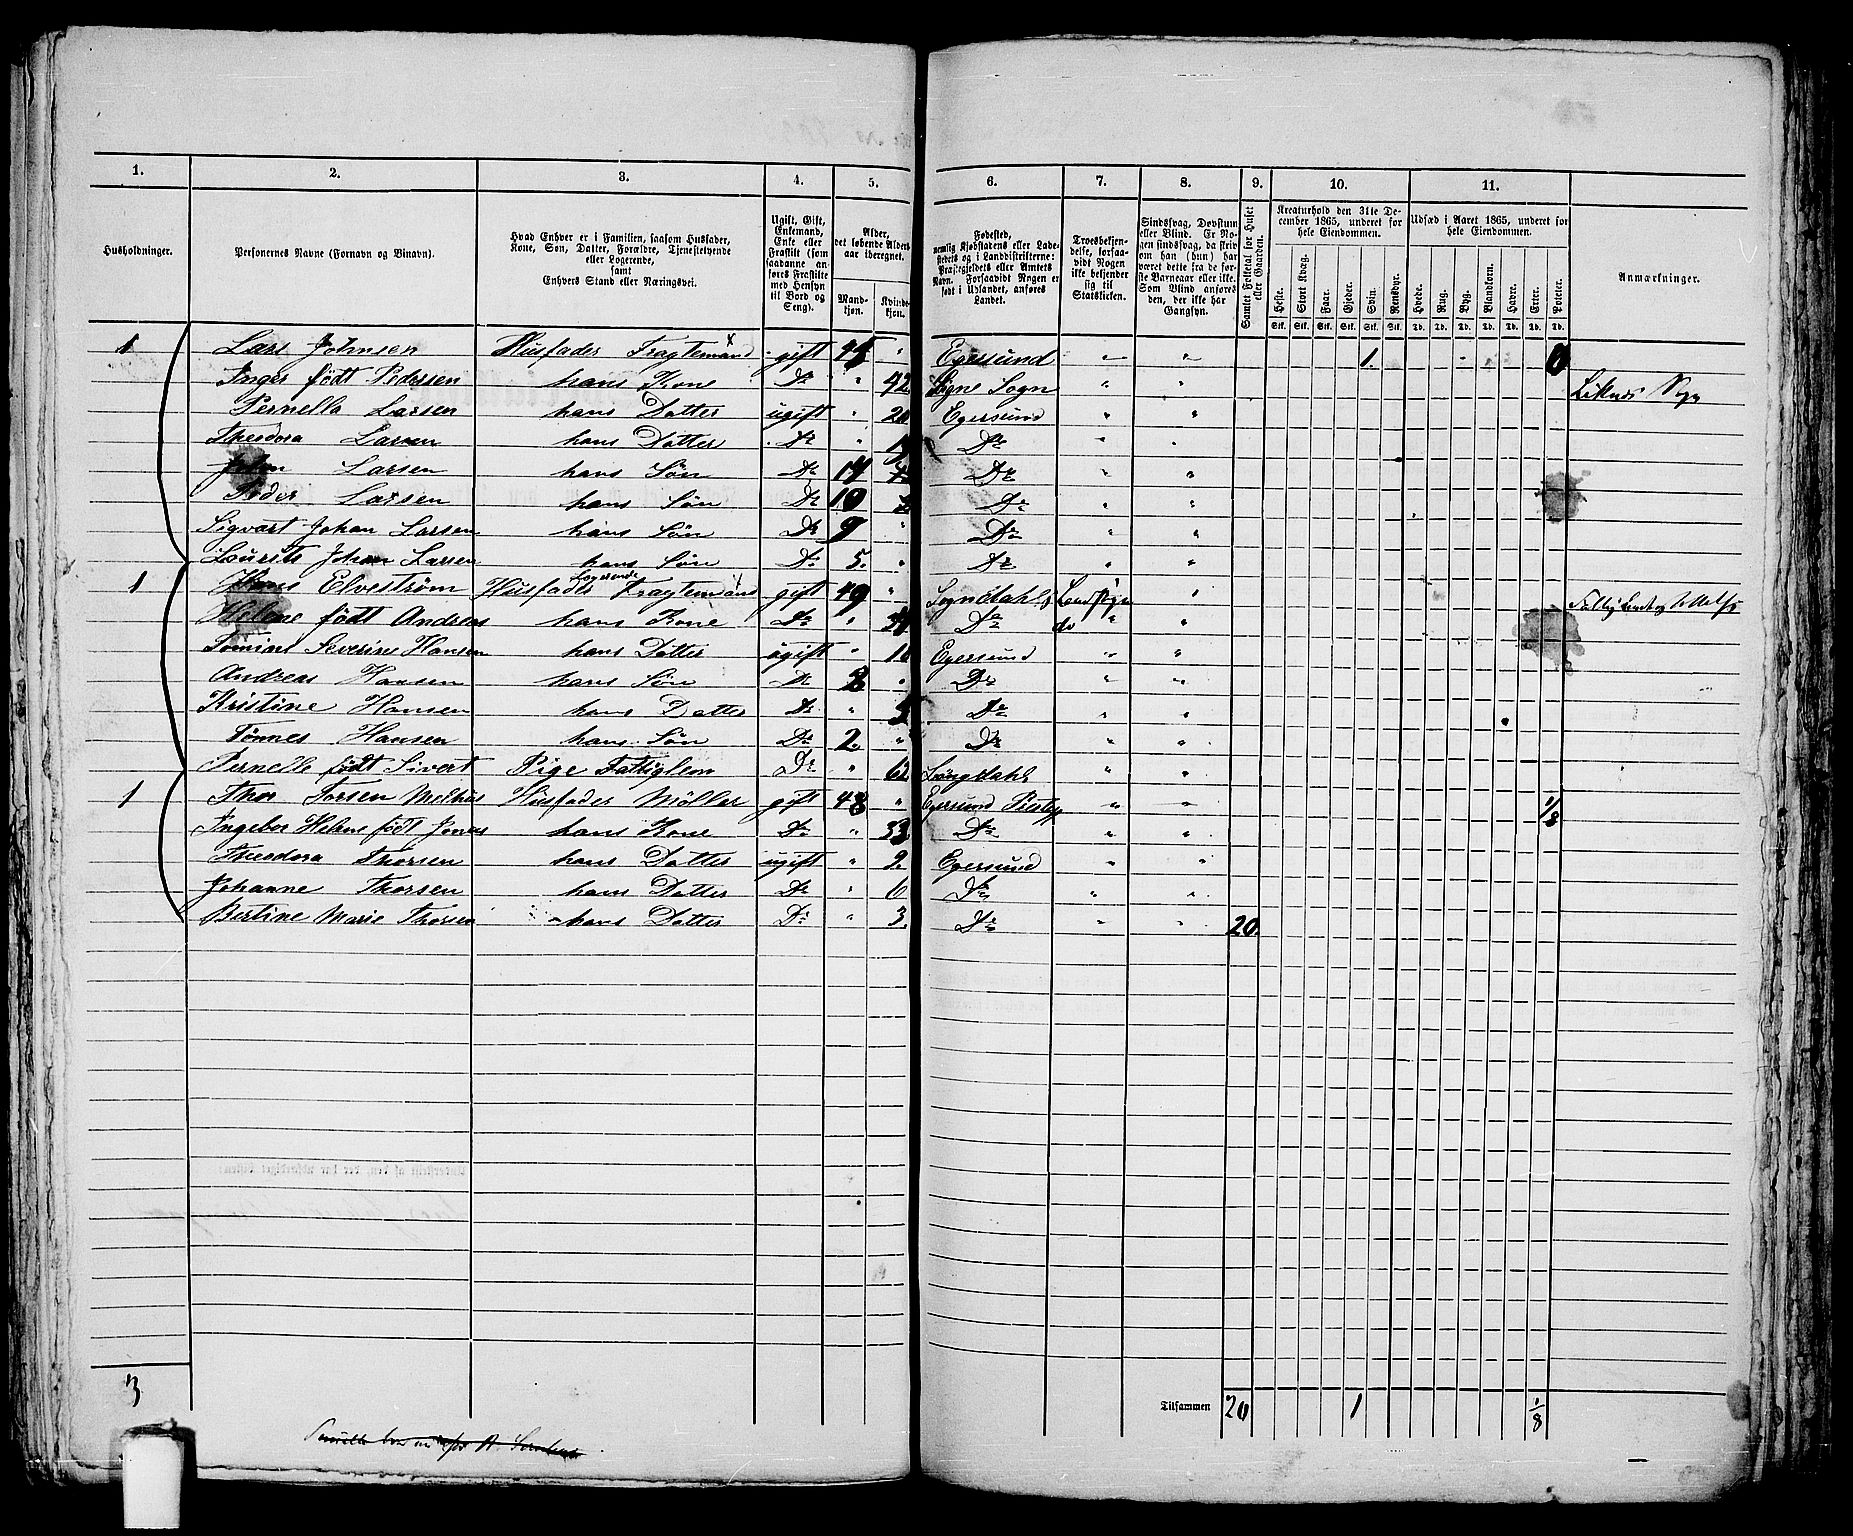 1. 2. 3. 4. 5. 6. 7. 8. 9. 10. 11.
Husholdninger.
Personernes Navne (Fornavn og Binavn).
Hvad Enhver er i Familien, saasom Husfader, Kone, Søn, Datter, Forældre, Tjenestetyende eller Logerende, samt Enhvers Stand eller Næringsvei.
Ugift, Gift, Enkemand, Enke eller Fraskilt (som saadanne anføres Fraskilte med Hensyn til Bord og Seng).
Alder, det løbende Aldersaar iberegnet.
Mandkjøn. Kvindekjøn.
Fødested, nemlig Kjøbstadens eller Ladestedets og i Landdistrikterne: Præstegjeldets eller Amtets Navn. Forsaavidt Nogen er født i Udlandet, anføres Landet.
Troesbekjendelse, forsaavidt Nogen ikke bekjender sig til Statskirken.
Sindssvag, Døvstum eller Blind. Er Nogen sindssvag, da skrives om han (hun) har været dette fra de første Barneaar eller ikke. Som Blind anføres den, der ikke har Gangsyn.
Samlet Folketal for Huset eller Gaarden.
Kreaturhold den 31te December 1865, underet for hele Eiendommen.
Heste. Stort Kvæg. Faar. Gjeder. Svin. Rensdyr.
Stk. Stk. Stk. Stk. Stk. Stk.
Udsæd i Aaret 1865, underet for hele Eiendommen.
Hvede. Rug. Byg. Blandkorn. Havre. Erter. Poteter.
Td. Td. Td. Td. Td. Td. Td.
Anmærkninger.
1 Lars Johnsen Husfader Fragtemand gift " Egersund " " 1. 0
Inger født Pedersen hans Kone Do " 42 Sogn " "
Pernella Larsen hans Datter ugift " 20 Egersund " "
Theodora Larsen hans Datter Do " Do " "
John Larsen hans Søn Do 17 Do " "
Peder Larsen hans Søn Do 10 Do " "
Sigvart Johan Larsen hans Søn Do 9 " Do " "
Laurits Johan Larsen hans Søn Do 5. " Do " "
1 Hans Elvestrøm Husfader Logerende Fragtemand gift 49 " Sogndahls Landsogn "
Helene født Andreas hans Kone Do " Do do " "
Severine Hansen hans Datter ugift " 10 Egersund " "
Andreas Hansen hans Søn Do " Do " "
Kristine Hansen hans Datter Do " Do " "
Tønnes Hansen hans Søn Do 2. " Do " "
Pernelle født Sivert Pige Fattiglem Do " 62 " "
1 Thor Torsen Melhus Husfader Møller gift 48 " Egersund " " 1/8
Ingebor Helene født Jonas hans Kone Do " 33 Do " "
Theodora Thorsen hans Datter ugift " 9. Egersund " "
Johanne Thorsen hans Datter Do " 6 Do " "
Bertine Marie Thorsen hans Datter Do " 3. Do " " 20.
3 Tilsammen 20 1 1/8